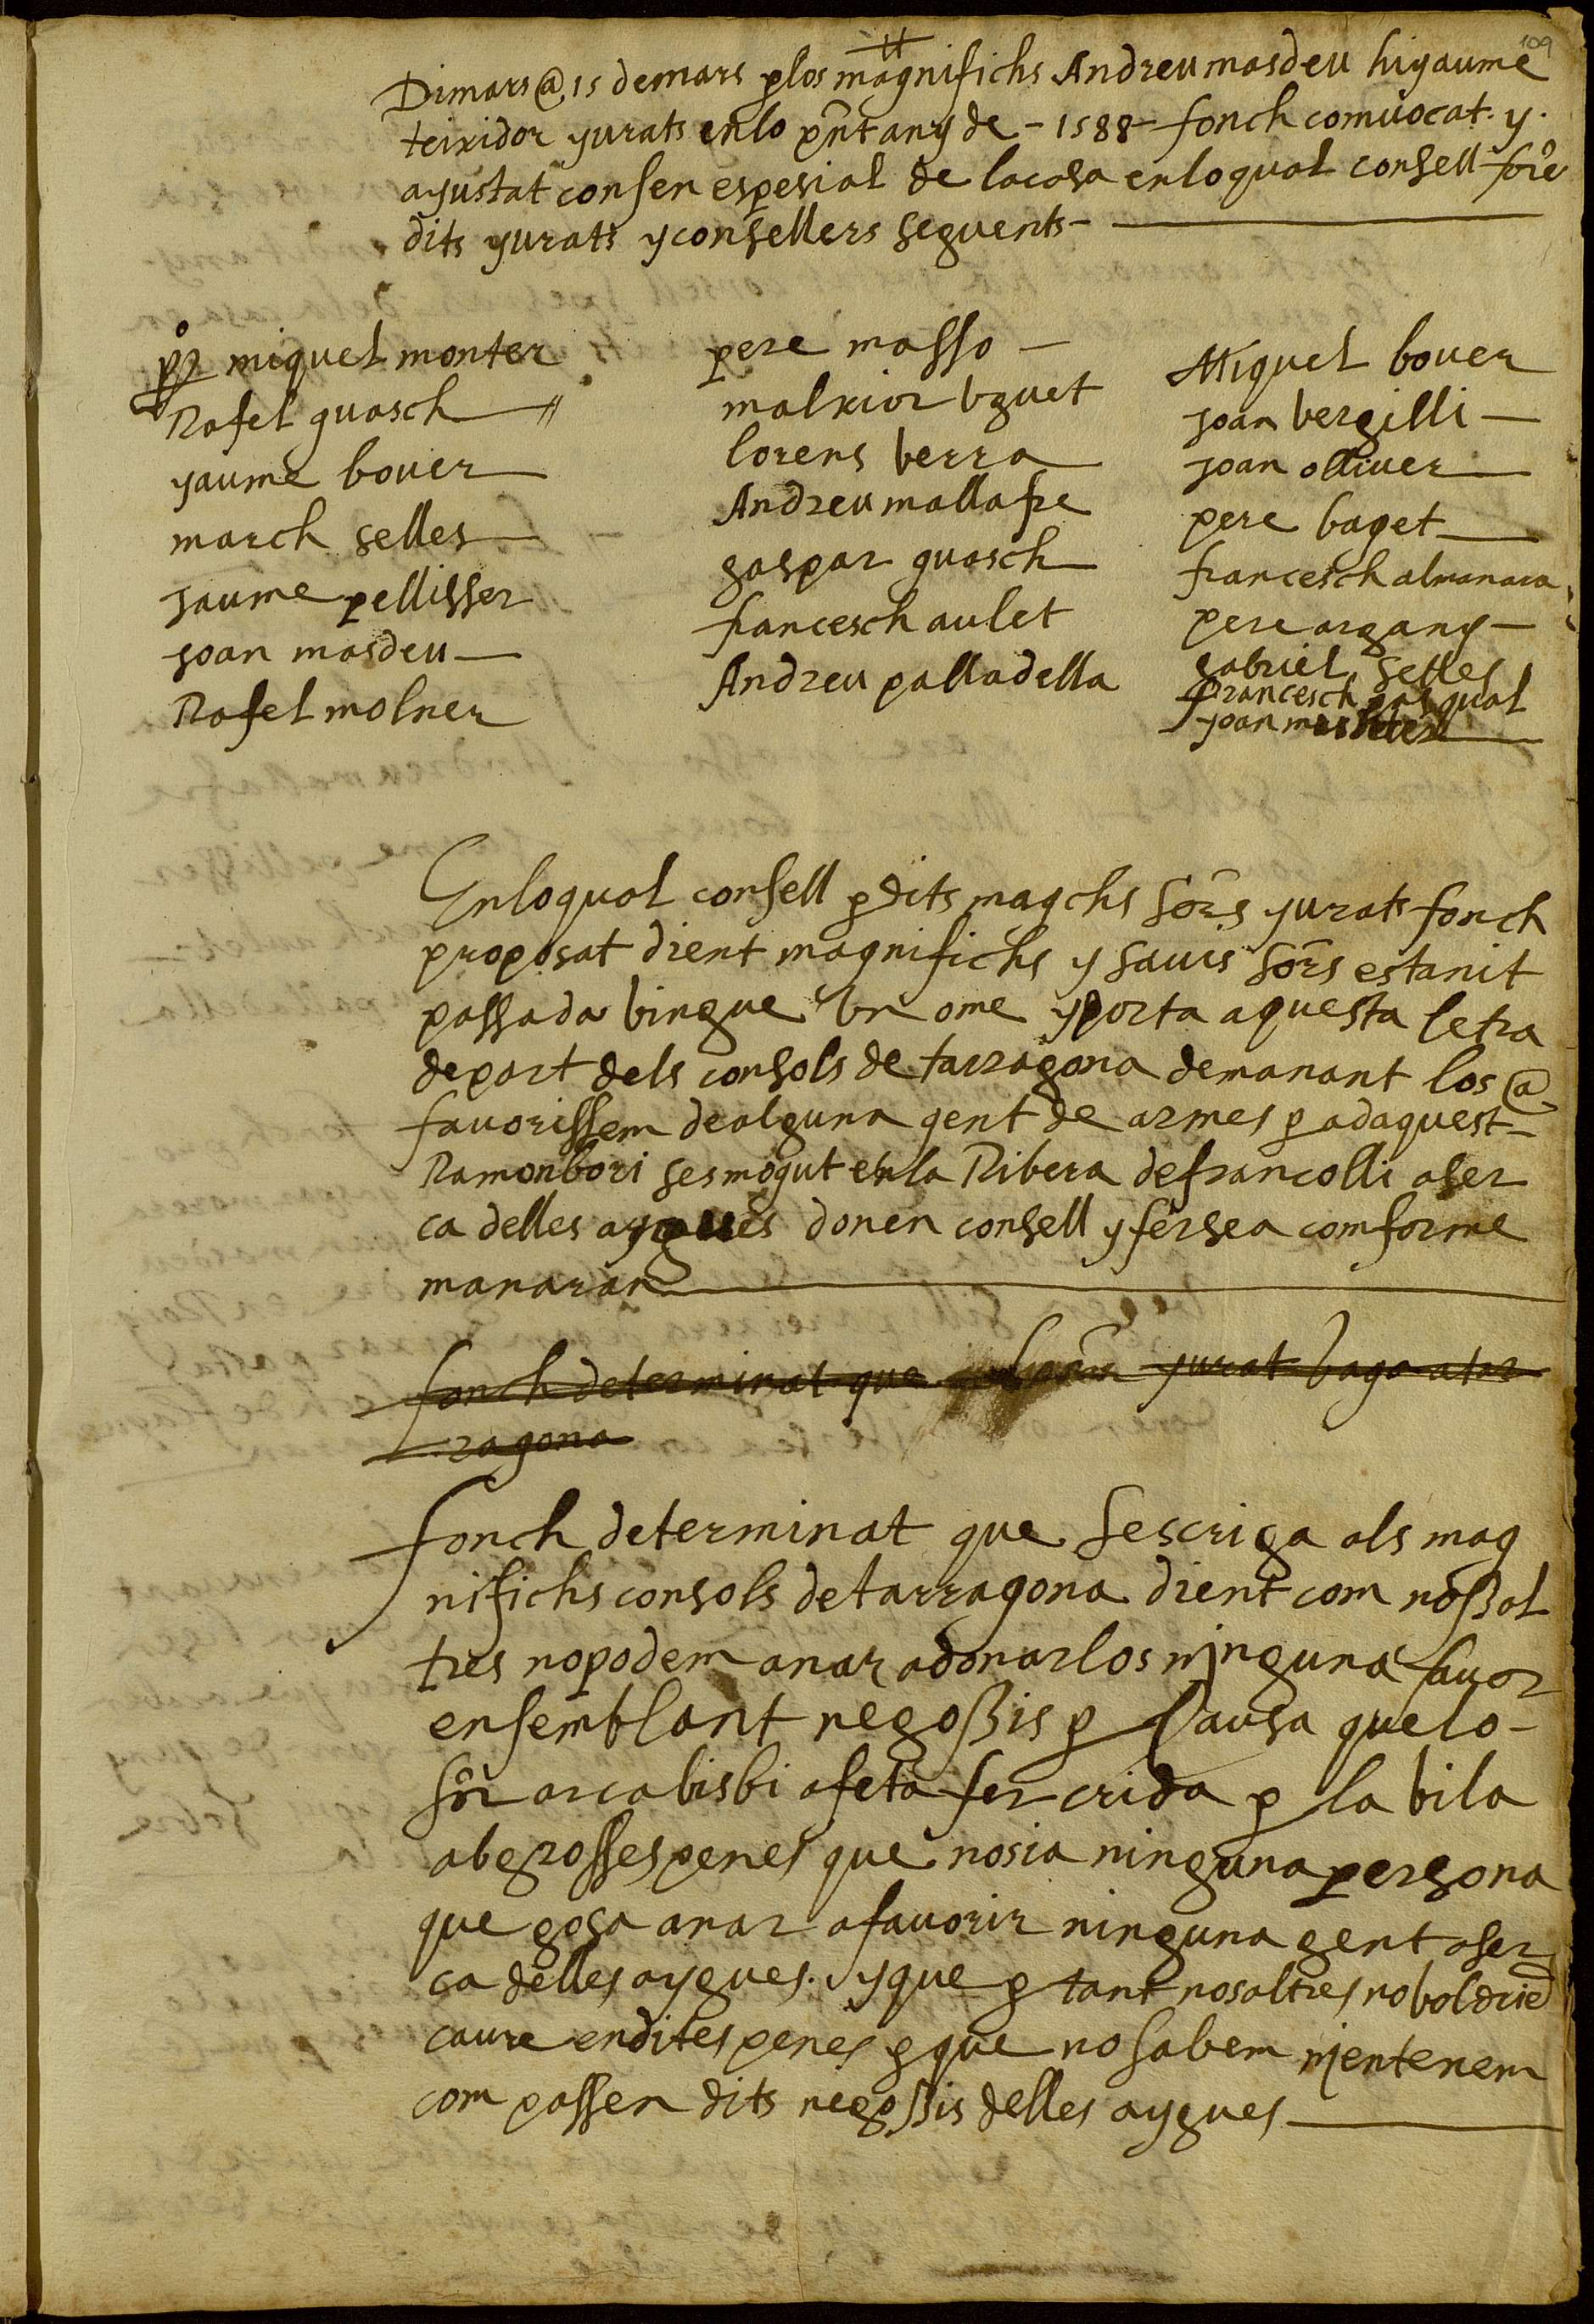 109
Dimars @ 15 de mars p los magnifichs Andreu masdeu hi yaume
teixidor yurats en lo pnt any de - 1588 - fonch comuocat. y.
ayustat consen espesial de la casa en lo qual consell fore
dits yurats y consellers seguents -
miquel monter
Rafel guasch
yaume bouer
march selles
Jaume pellisser
Joan masdeu
Rafel molner
pere masso
malxior uguet
lorens berra
Andreu mallafre
gaspar guasch
francesch aulet
Andreu palladella
Miquel bouer
Joan bergilli
Joan olliuer
pere baget
francesch almanara
pere argany
gabriel selles
francesch pasqual
Joan
En lo qual consell p dits magchs sors yurats fonch
proposat dient magnifichs y sauis sors esta nit
passada bingue un ome y porta aquesta letra
de part dels consols de tarragona demanant los @
fauorissem de alguna gent de armes p ad aquest
Ramon bori ses mogut en la Ribera de francolli aser
ca delles aygues donen consell y fersea comforme
manaran
fonch determinat que yurat baga a tar
ragona
fonch determinat que sescriga als mag
nifichs consols de tarragona dient com noßal
tres no podem anar a donarlos ninguna fauor
en semblant negoßis p causa que lo -
sor arcabisbi a feta fer crida p la bila
ab grosses penes que no sia ninguna persona
que gosa anar a fauorir ninguna gent aser
ca delles aygues. y que p tant nosaltres no boldrie
caure en dites penes p que no sabem ni entenem
com passen dits negoßis delles aygues